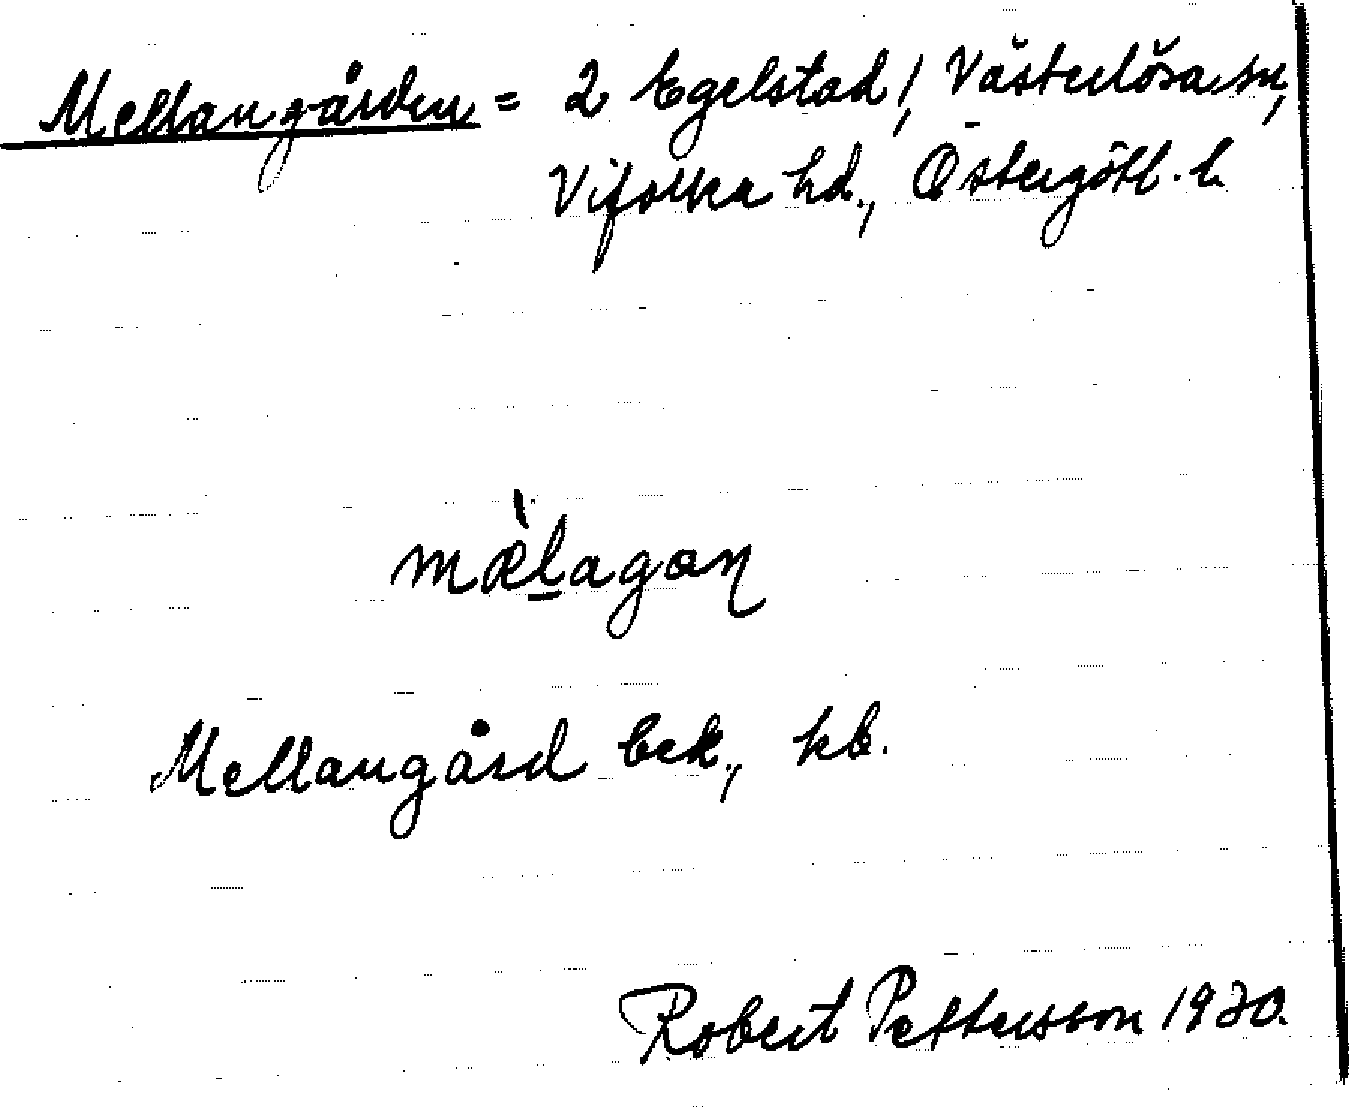 Mellangården = 2 Egelstad /, Västerlösa sn,
Vifolka hd., Östergötl. l.
mæ̀l̲agaɳ
Mellangård bek., kb.
Robert Pettersson 1930.